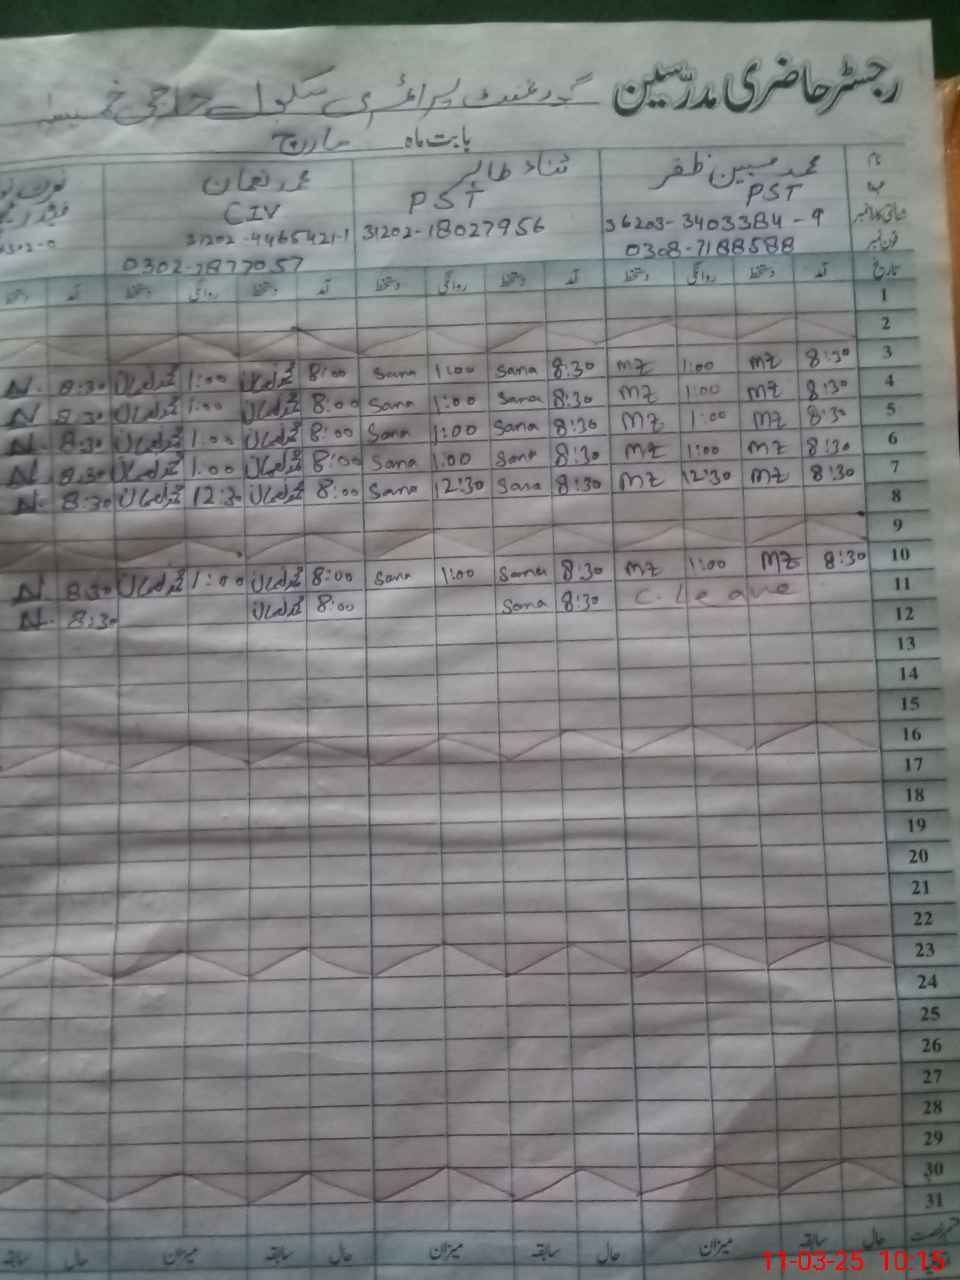 رجسٹر حاضری مدرسین گورنمنٹ پرائمری سکول حاجی
بابت ماہ مارچ
نام محمد مبین ظفر ثناء طالب محمد نعمان
PST PST CIV
شناختی کارڈ نمبر 36203-3403384-9 31202-18027956 31202-4465421-1
فون نمبر 0308-7188588 0302-7877057
تاریخ آمد دستخط روانگی دستخط آمد دستخط روانگی دستخط آمد دستخط روانگی دستخط آمد دستخط
1
2
3 8:30 MZ 1:00 MZ 8:30 Sana 1:00 Sana 8:00 1:00 8:30 N.
4 8:30 MZ 1:00 MZ 8:30 Sana 1:00 Sana 8:00 1:00 8:30 N
5 8:30 MZ 1:00 MZ 8:30 Sana 1:00 Sana 8:00 1:00 8:30 N.
6 8:30 MZ 1:00 MZ 8:30 Sana 1:00 Sana 8:00 1:00 8:30 N
7 8:30 MZ 12:30 MZ 8:30 Sana 12:30 Sana 8:00 12:30 8:30 N.
8
9
10 8:30 MZ 1:00 MZ 8:30 Sana 1:00 Sana 8:00 1:00 8:30 N
11 C. Leave 8:30 Sana 8:00 8:30 N.
12
13
14
15
16
17
18
19
20
21
22
23
24
25
26
27
28
29
30
31
حال سابقہ میزان حال سابقہ میزان حال سابقہ میزان حال سابقہ
11-03-25 10:15